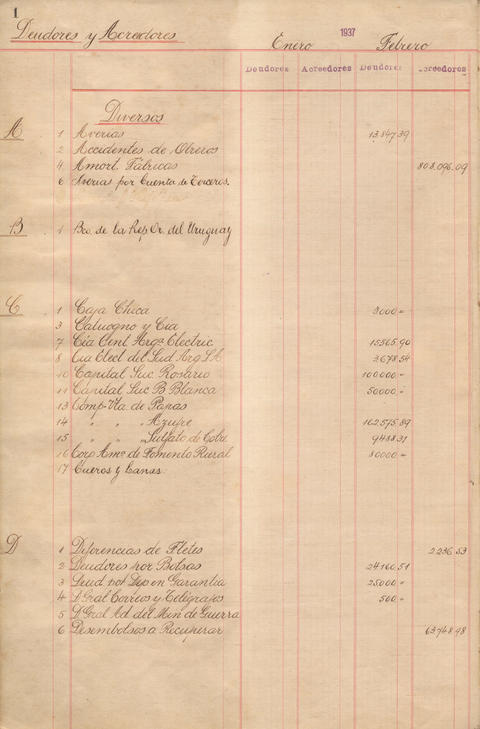 1
Deudores y Acreedores
Enero 1937 Febrero
Deudores Acreedores Deudores Acreedores
Diversos
A 1 Averias 13.847.39
2 Accidentes de Obreros
4 Amort. Fábricas 808.096.09
6 Averias por Cuenta de Terceros.
B 1 Bco. de la Rep Or. del Uruguay
C 1 Caja Chica 3000 -
3 Catuogno y Cia
7 Cia Cent Argª Electric 15565.90
8 Cia Elect del Sud Arg S.A. 3678.54
10 Capital Suc. Rosario 100000 -
11 Capital Suc B Blanca 50000 -
13 Comp-Vta. de Papas
14 " " " Azufre 162575.89
15 " " " Sulfato de Cobre 9488.31
16 Corp Amª de Fomento Rural 80000 -
17 Cueros y Lanas
D 1 Diferencias de Fletes 2236.53
2 Deudores por Bolsas 24160.51
3 Deud por Dep en Garantia 25000 -
4 D Gral Correos y Telégrafos 500 -
5 D Gral Ad. del Min de Guerra
6 Desembolsos a Recuperar 63748.98